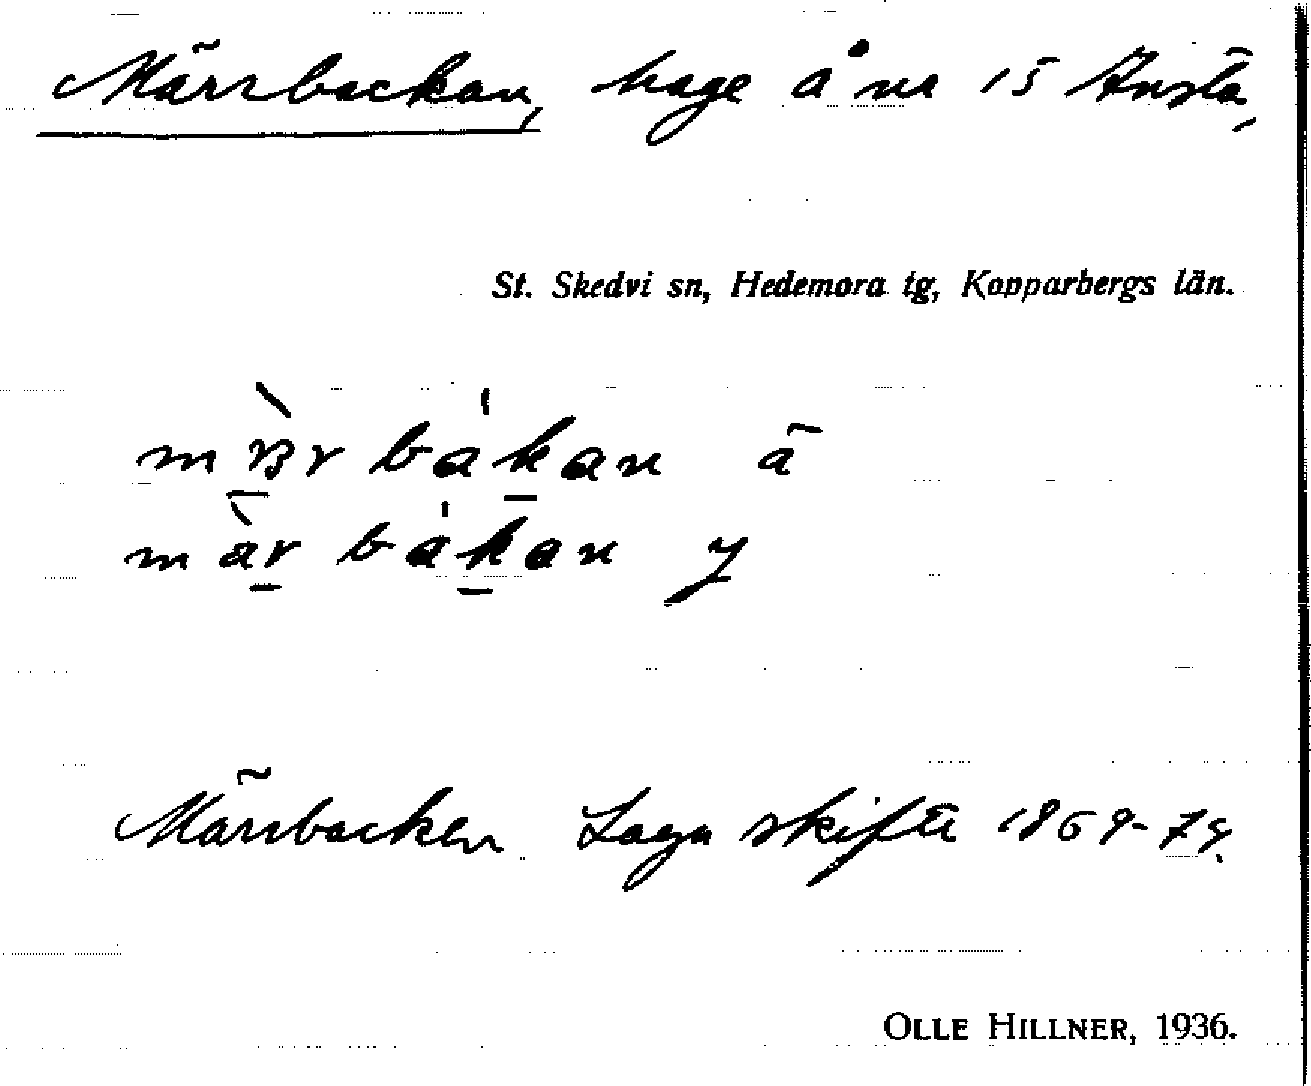 Märrbackan, hage å nr 15 Ansta,
St. Skedvi sn, Hedemora tg, Kopparbergs län.
bákan ä
bákan y
Märrbacken Laga skifte 1869-79.
OLLE HILLNER, 1936.